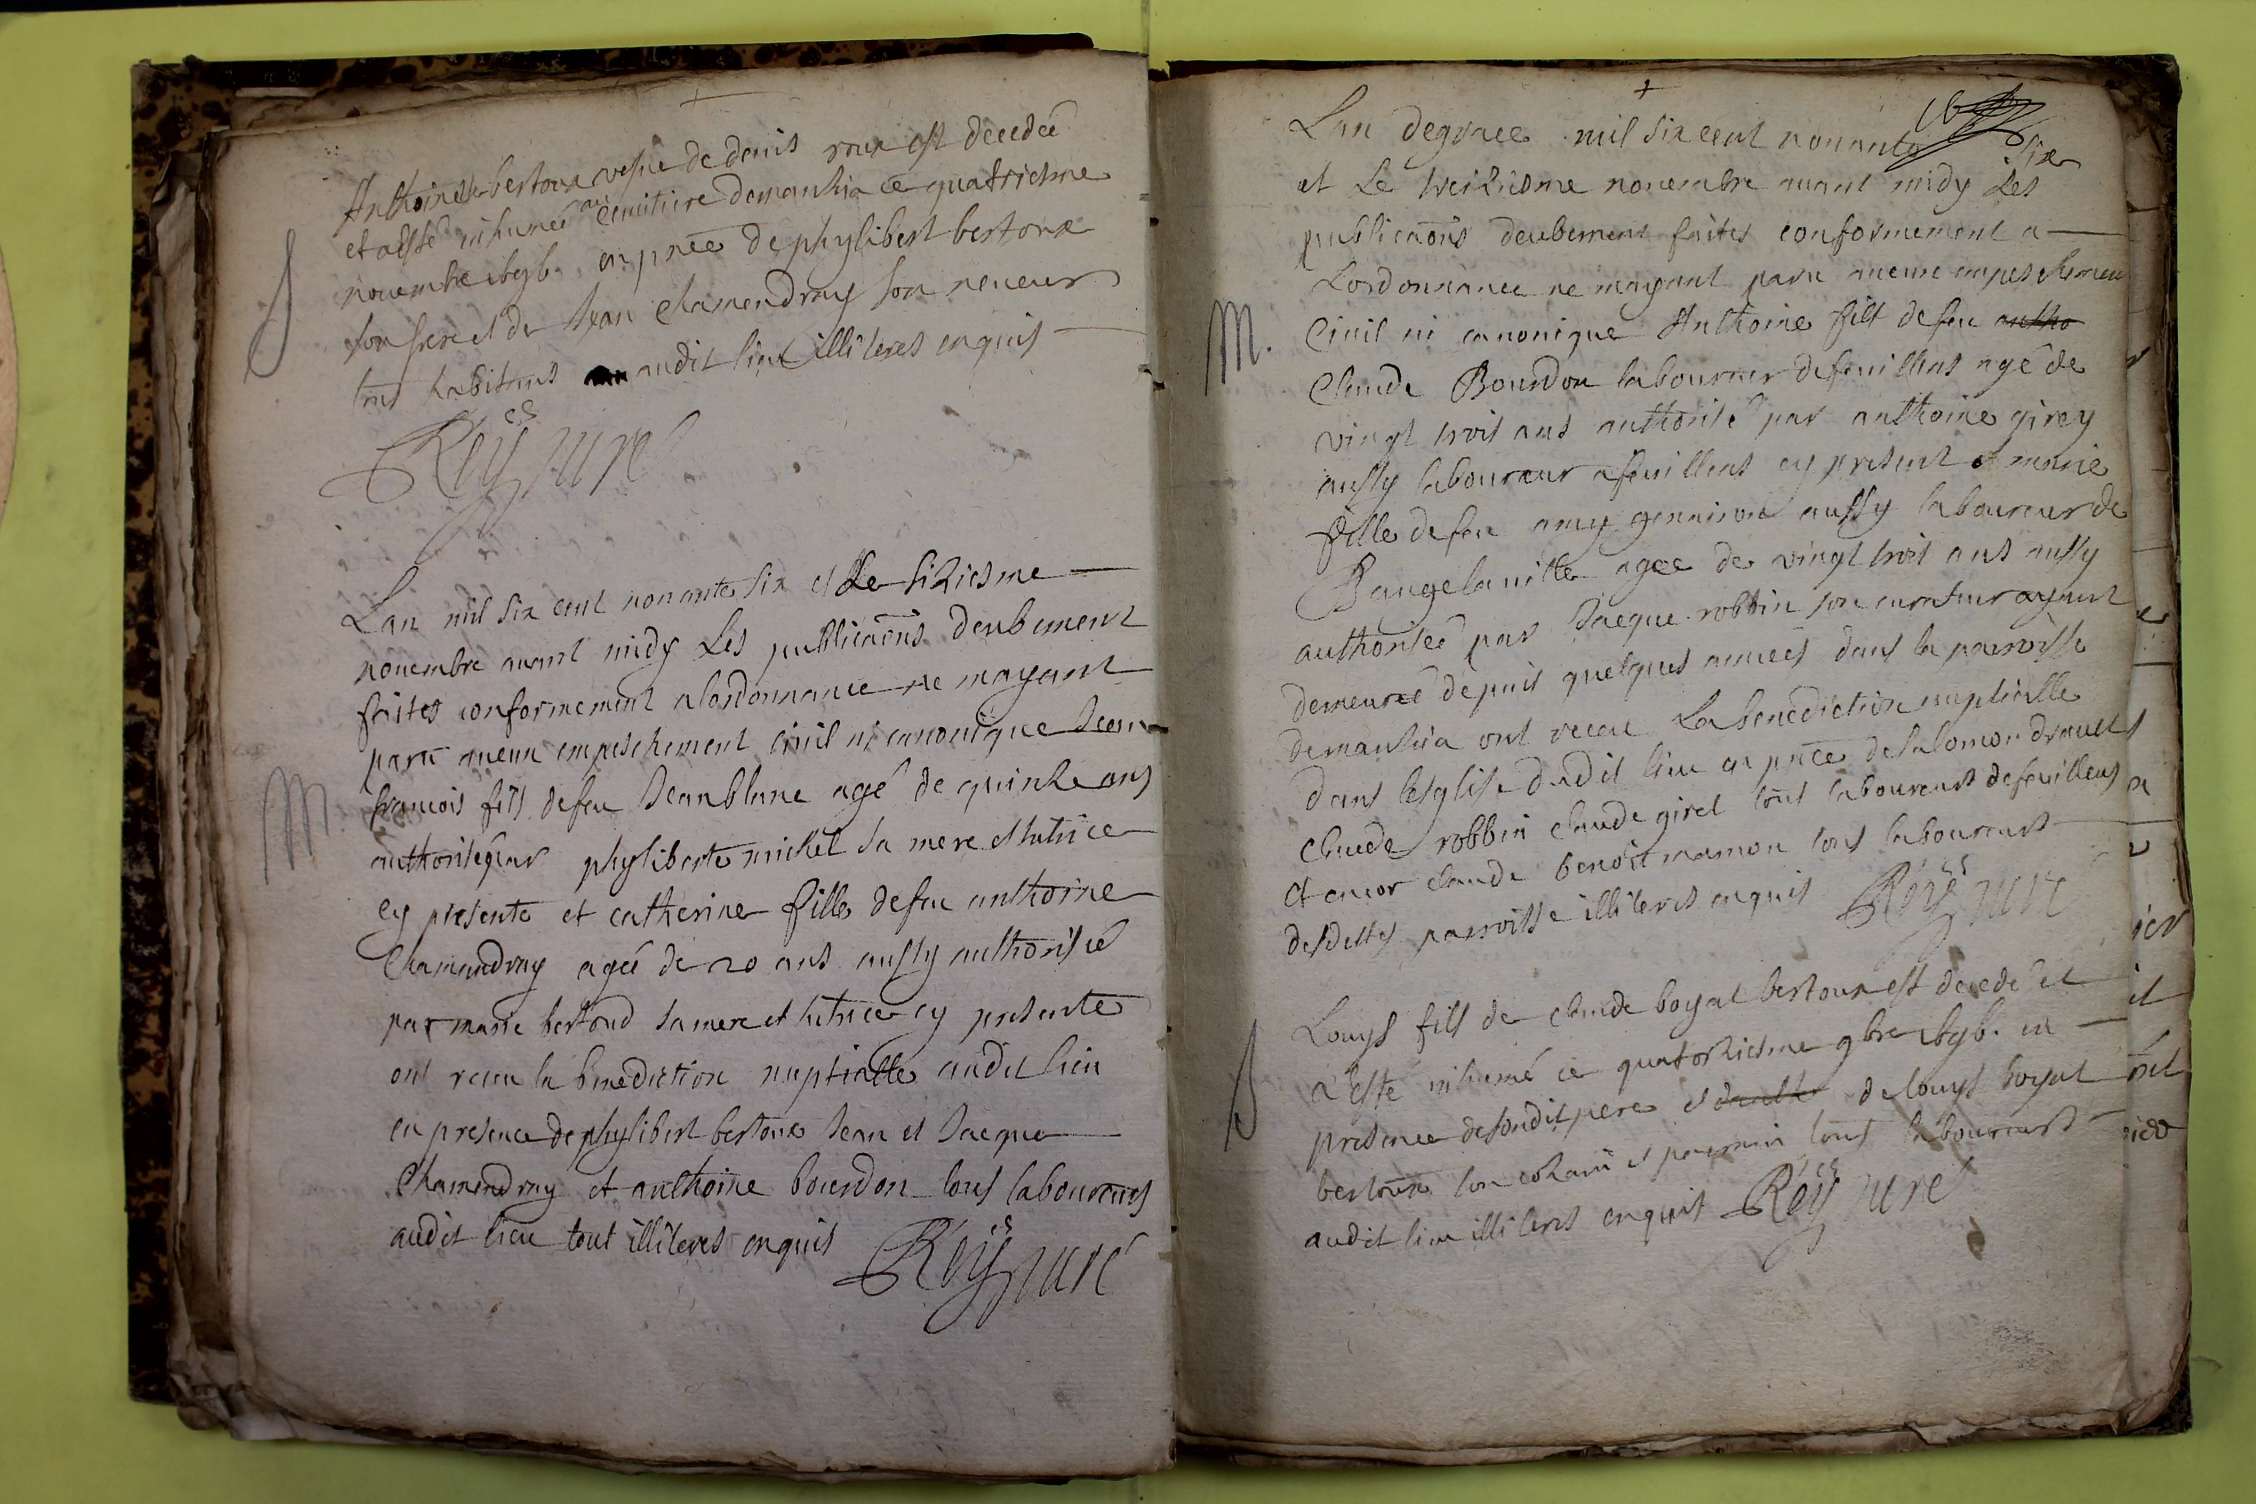 Anthoinette bertoux vefue de denis roux est decedeé
et a esté inhumeé au cemitiere demanhia ce quatriesme
nouembre en pñce de phylibert bertoux
son frere et de Jean Chamendray son neueux
tous habitans audit lieu illiteres enquis
Reÿ curé
S
Lan mil six cent nonante six et Le siziesme
nouembre auant midy Les publicaõns deubement
faites conformement alordonnance ne mayant
paru aucun empeschement ciuil ni canonique Jean
francois fils defeu Jean blanc agé de quinze ans
authorisé par phyliberte michel sa mere et tutrice
cy presente et catherine fille defeu anthoine
Chamendray ageé de 20 ans aussy authoriseé
par marie bertoud sa mere et tutrice cy presente
ont receu la benediction nuptialle audit lieu
en presence de phylibert bertoux Jean et Jacque
Chamendray et anthoine bourdon tous laboureurs
audit lieu tout illiteres enquis Reÿ curé
M.
+
Lan degrace mil six cent nonante six
et Le treiziesme nouembre auant midy Les
publicaõns deubement faites conformement a
Lordonnance ne mayant paru aucun empeschemen
Ciuil ni canonique Anthoine fils defeu antho
Claude Bourdon laboureur defeuillens agé de
vingt trois ans authorisé par anthoine girey
aussy laboureur afeuillens cy present et marie
fille defeu amy aussy laboureur de
Baugelaville agee de vingt trois ans aussy
authoriseé par Jacque robbin son curateur ayant
demeuré depuis quelques anneés dans la parroisse
demanhia ont receu La benediction nuptialle
dans leglise dudit lieu en pñce de salomon drauets
Claude robbin Claude girel tous laboureurs defeuillens
et encor claude benoit mamon tous laboureurs
desdittes parroisse illiteres enquis Reÿ curé
M.
Louys fils de claude boyat bertoux est decedé et
a esté inhumé ce quatorziesme 9bre en
presence desondit pere et de louys boyat
bertoux son et parrain tous laboureurs
audit lieu illiteres enquis Reÿ curé
S